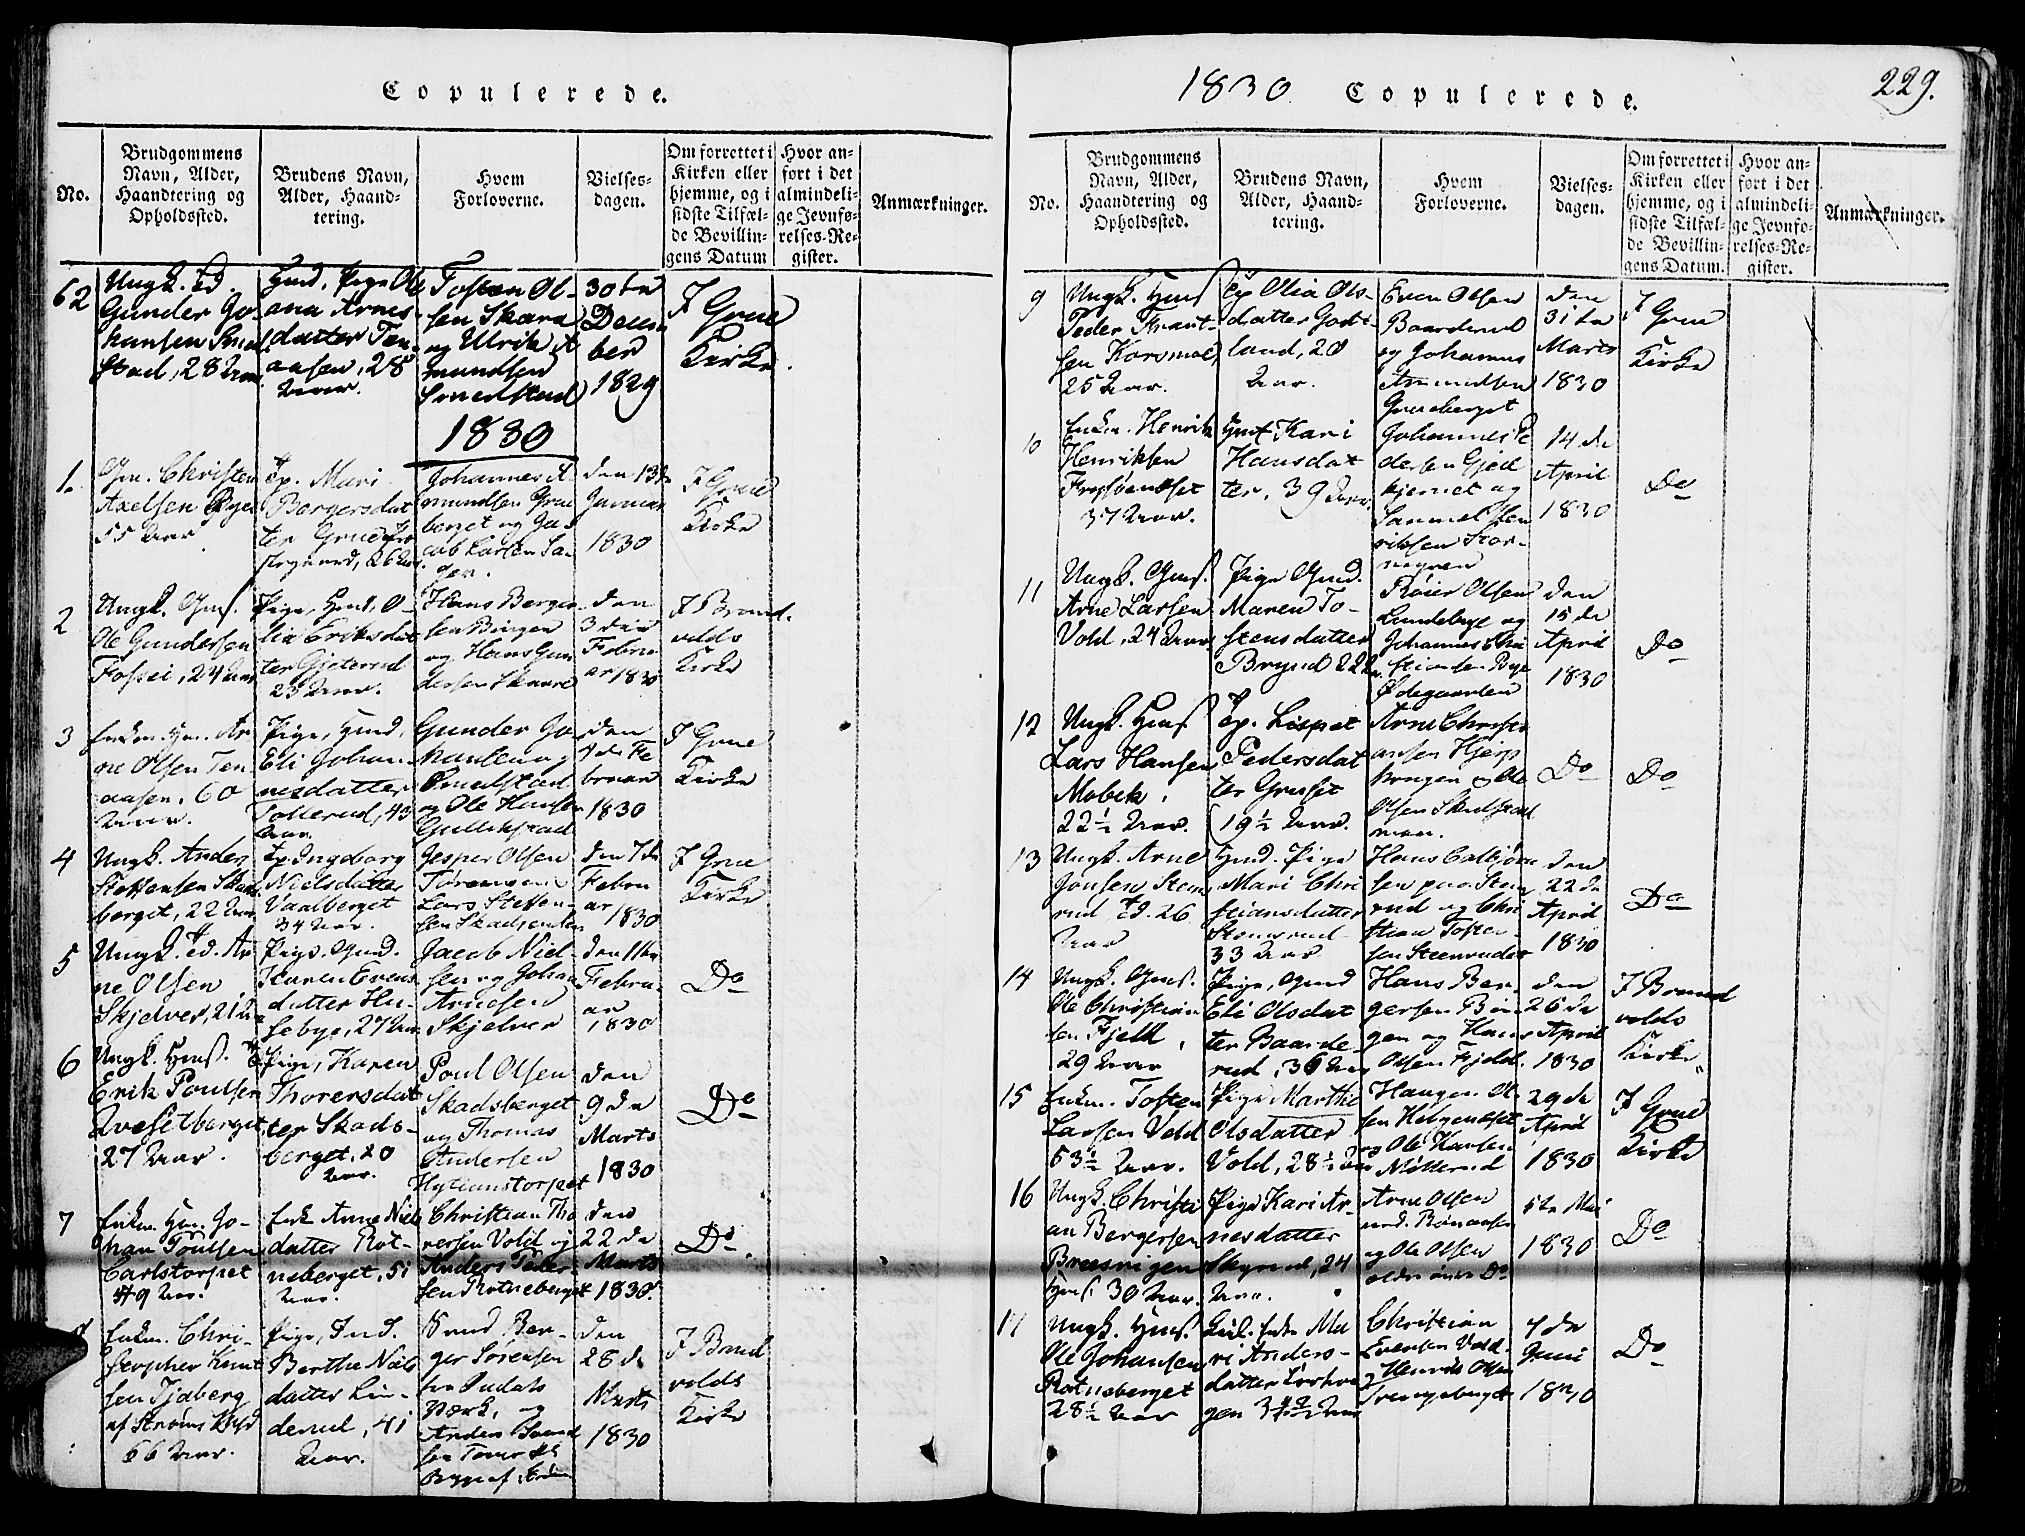 Copulerede.
No.
Brudgommens
Navn, Alder,
Haandtering og
Opholdssted.
Brudens Navn,
Alder, Haand-
tering.
Hvem
Forloverne.
Vielses-
dagen.
Om forrettet i
Kirken eller
hjemme, og i
sidste Tilfæl-
de Bevillin-
gens Datum
Hvor an-
ført i det
almindeli-
ge Jevnfø-
relses-Re-
gister.
Anmærkninger.
62
Gunder Jo-
hansen Smed-
stad, 28 Aar
Pige Ol
ana Arnes
datter Ten-
aasen, 28
Aar.
Tosten Ol-
sen Skara
og Ulrik A
mundsen
Smedstad
30te
Decem
ber
1829
I Grue
Kirke.
1830
1.
Gm. Christen
Axelsen
55 Aar
Ep. Mari
Borgersdat
ter Grue
26
Johannes A
mundsen Grue
berget og Ja-
cob Larsen
den 13de
Januar
1830
I Grue
Kirke
2
Ungk. Gms.
Ole Gundersen
Fossei, 24 Aar
Pige, O-
lia Eriksdat
ter Gjeterud
23 Aar.
Hans Berger
sen Bingen
og Hans Gun
dersen Skaare
den
3die
Febru
ar 1830
I Brand-
volds
Kirke
3
Enkm. Hm. Ar
ne Olsen Ten
aasen, 60
Aar.
Pige, Hmd.
Eli Johan-
nesdatter
Tollerud, 43
Aar
Gunder Jo
hansen
Smedstad
og Ole Hansen
Gullikstad
den
4de Fe
bruar
1830
I Grue
Kirke
4
Ungk. Anders
Steffensen
berget, 22 Aar
Ep Ingeborg
Nielsdatter
Vaalberget
34 Aar.
Jesper Olsen
Lars Steffen-
sen
den 7de
Febru
ar
1830
I Grue
Kirke
5
Ungk. Ar
ne Olsen
Skjelver, 21 Aar
Pige, Gmd.
Karen Evens
datter Hu-
sebye, 27 Aar
Jacob Niel-
sen og Johan
Arnesen
Skjelver
den 11te
Febru-
ar
1830
Do
6
Ungk. Hms.
Erik Poulsen
Qvesetberget
27 Aar.
Pige, Karen
Thorersdat
ter Skads-
berget, 20
Aar.
Poul Olsen
Skadsberget
og Thomas
Andersen
den
9de
Marts
1830
Do
7
Enkm. Hm. Jo-
han Poulsen
Carlstorpet
49 Aar.
Enk Anne Niels
datter Rot-
neberget, 51
Aar.
Christian Tho
rersen Vold og
Anders Peder-
sen Rotneberget
den
22de
Marts
1830.
Do
Enkm. Chri-
stopher Knut
sen Tjaberg
af Strøms
66 Aar.
Pige,
Berthe Niels
datter Lin-
derud, 41
Aar.
Svend Ber-
ger Sørensen
Værk, og
Anders Svend
sen
den
28de
Marts
1830
I Brand
volds
Kirke
1830. Copulerede.
229.
No.
Brudgommens
Navn, Alder,
Haandtering og
Opholdssted.
Brudens Navn,
Alder, Haand-
tering.
Hvem
Forloverne.
Vielses-
dagen.
Om forrettet i
Kirken eller
hjemme, og i
sidste Tilfæl-
de Bevillin-
gens Datum.
Hvor an-
ført i det
almindeli-
ge Jevnfø-
relses-Re-
gister.
Anmærkninger.
9
Ungk. Hms
Peder Knut-
sen Korsmoe,
25 Aar.
Ep Olia Ols-
datter Godt-
land, 20
Aar.
Even Olsen
Baarderud
og Johannes
Amundsen
Grueberget
den
31te
Marts
1830
I Grue
Kirke
10
Enkm. Henrik
Henriksen
37 Aar.
Kari
Hansdat
ter, 39 Aar.
Johannes Pe
dersen Gjed
kjernet og
Samuel Hen
riksen
14de
April
1830
Do
11
Ungk. Gms.
Arne Larsen
Vold, 24 Aar
Pige Gmd.
Maren To-
stensdatter
Brynd 22
Roier Olsen
Lundebye og
Johannes Chri
stiansen Bye
Ødegaarden
den
15de
April
1830
Do
12
Ungk. Hms
Lars Hansen
Mobek,
22½ Aar.
Ep. Lispet
Pedersdat
ter Gruset
19½ Aar.
Arne Christi
ansen Hjerp
krogen og Ole
Olsen Skulstad
moen.
Do
Do
13
Ungk. Arne
Jonsen Steen
rud 26
Aar
Hmd. Pige
Mari Chri
stiansdatter
33 Aar
Hans Colbjørn
sen paa Steen
rud og Chri
stian Tosten
sen Steenrudet
den
22de
April
1830
Do
14
Ungk. Gms.
Ole Christian
sen Fjeld,
29 Aar
Pige, Gmd
Eli Olsdat
ter Baarde-
rud, 36 Aar
Hans Ber-
gersen Bin
gen og Hans
Olsen Fjeld.
den
26de
April
1830
I Brand
volds
Kirke
15
Enkm. Tosten
Larsen Vold
53½ Aar.
Pige Marthe
Olsdatter
Vold, 28½ Aar
Haagen Ol-
sen Helgeneset
og Ole Hansen
Møllerud
29de
April
1830
I Grue
Kirke
16
Ungk. Christi
an Bergersen
30 Aar.
Pige Kari Ar-
nesdatter
Skyrud, 24
Aar.
Arne Olsen
og Ole Olsen
5te Mai
1830
Do
17
Ungk. Hms.
Ole Johansen
Rotneberget
28½ Aar
Ma
ri Anders-
datter
gen
Christian
Evensen Vold
og Henrik Olsen
4de
Juni
1830
Do